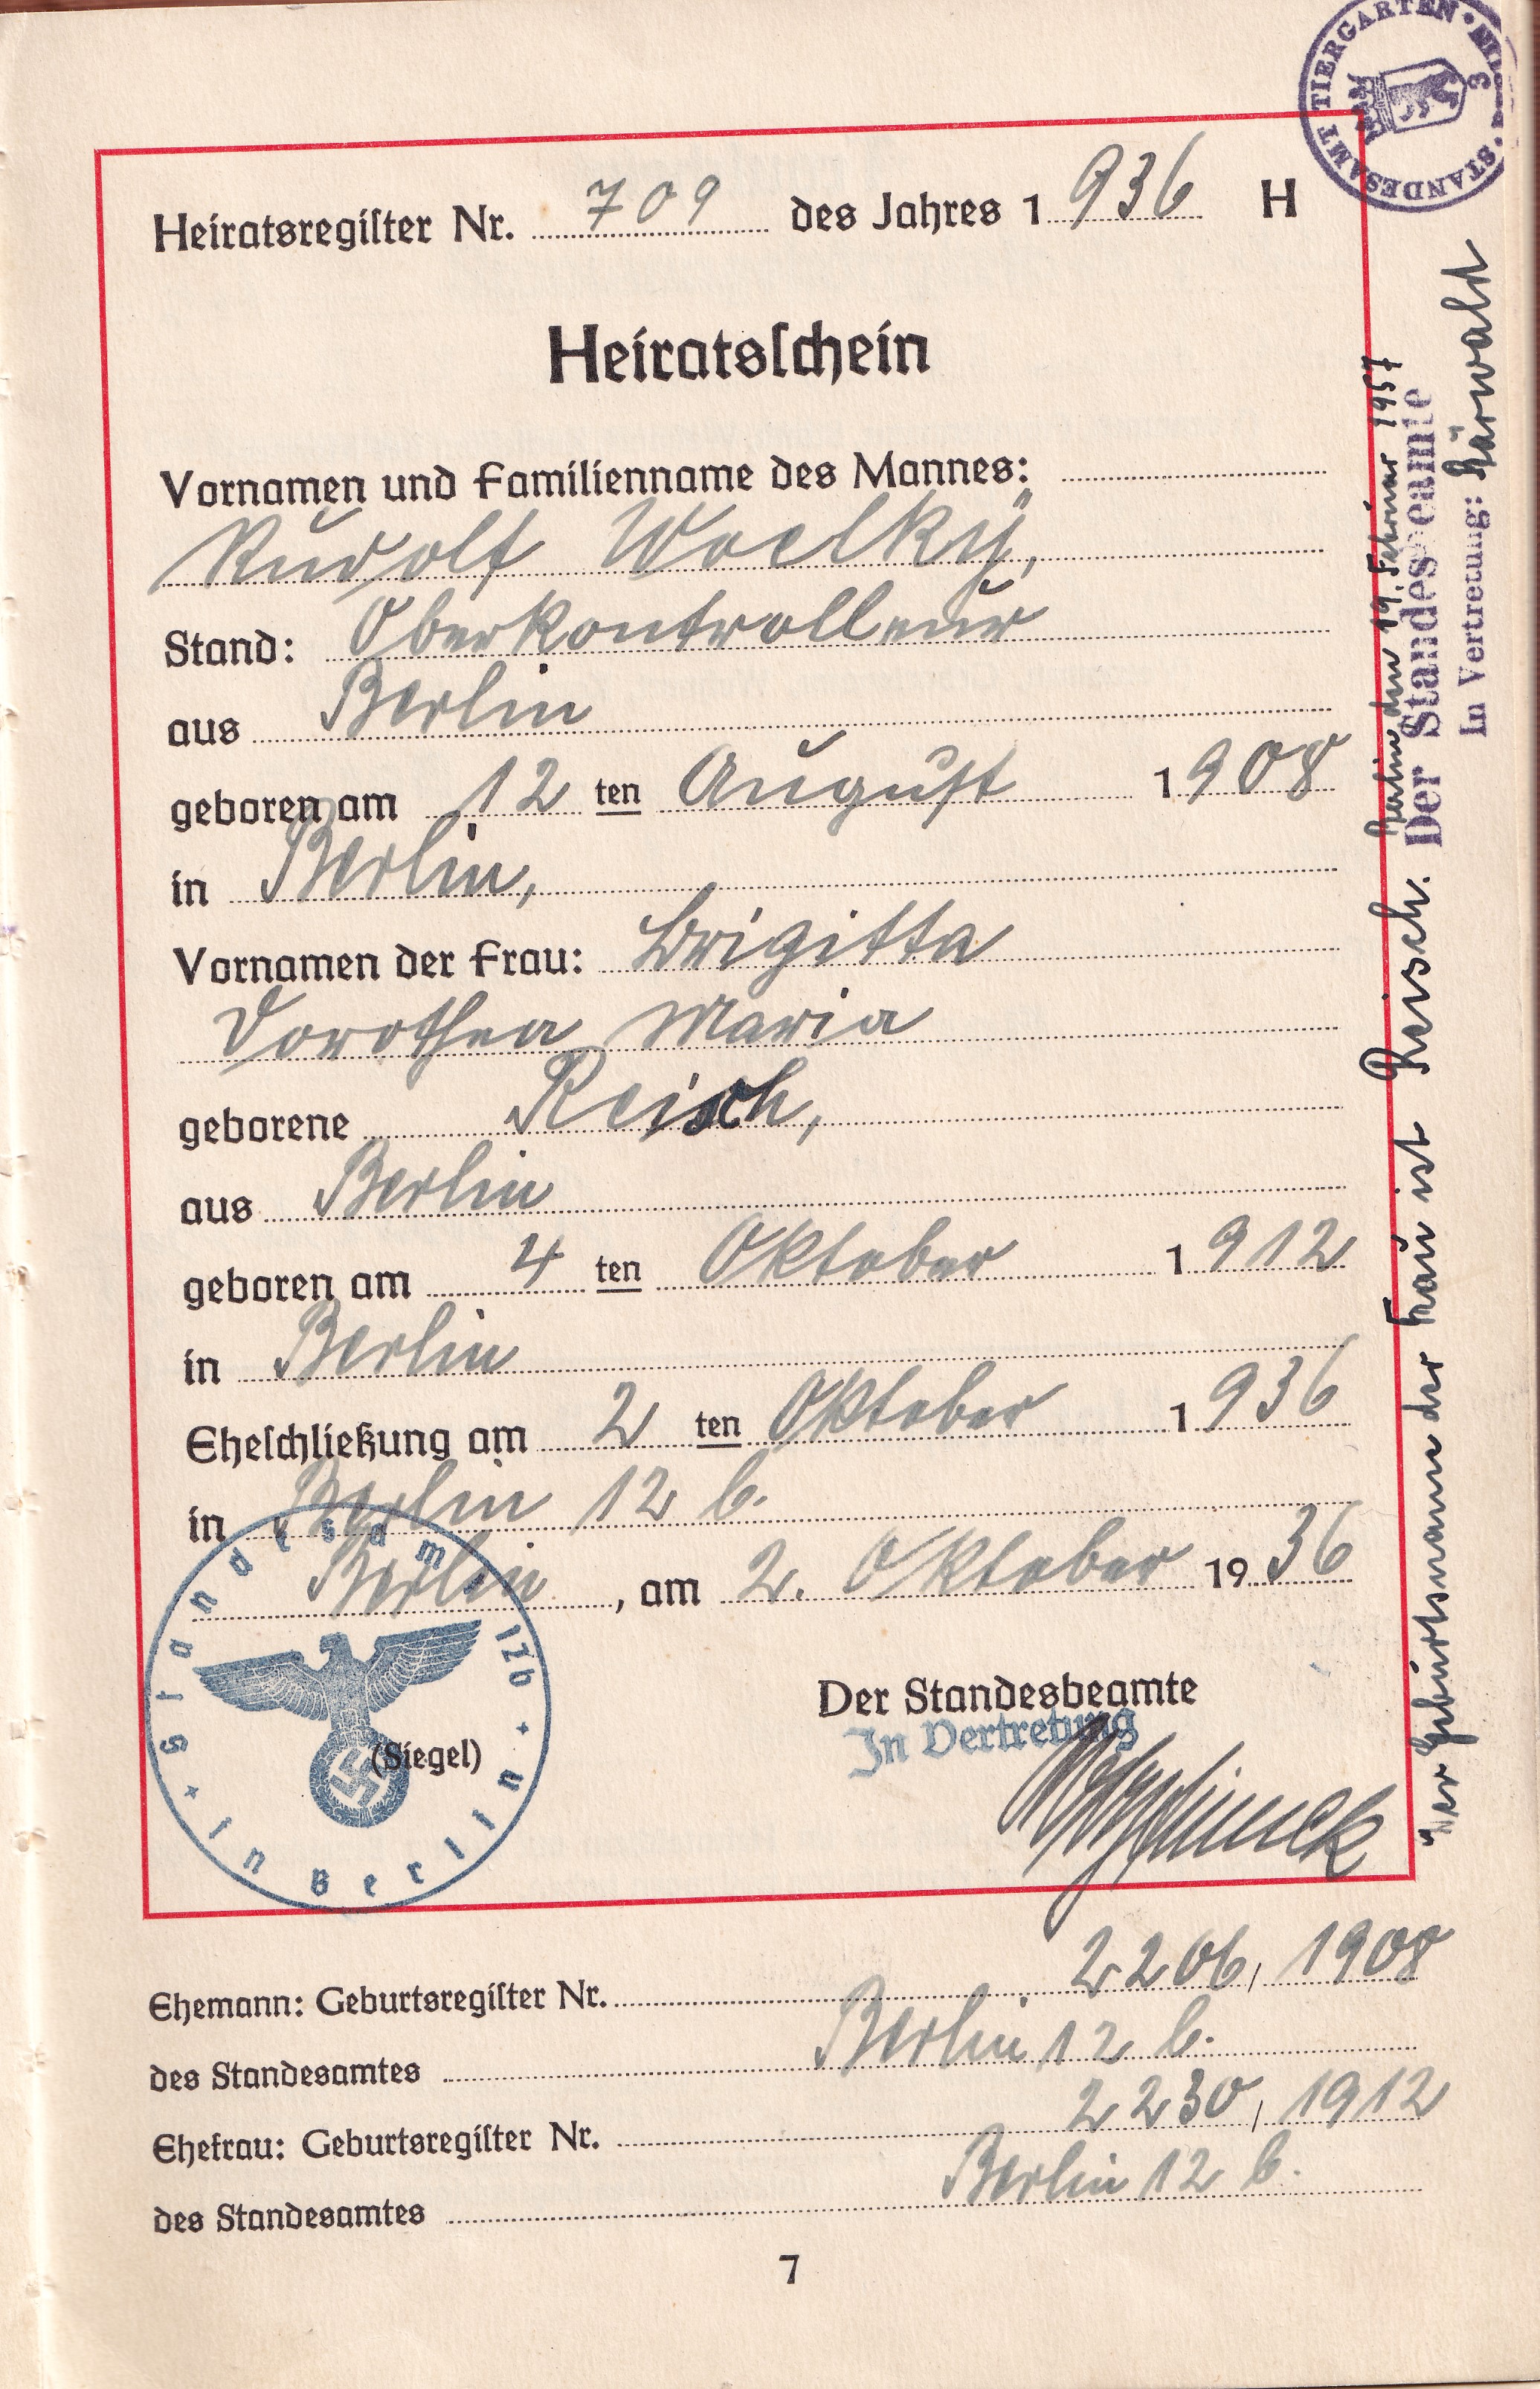 Heiratsregister Nr. 709 des Jahres 1936 H
Heiratsschein
Vornamen und Familienname des Mannes:
Rudolf Woelky,
Stand: Oberkontrolleur
aus Berlin
geboren am 12 ten August 1908
in Berlin,
Vornamen der Frau: Brigitta
Dorothea Maria
geborene Reisch,
aus Berlin
geboren am 4 ten Oktober 1912
in Berlin
Eheschließung am 2 ten Oktober 1936
in Berlin 12 b.
Berlin, am 2. Oktober 1936
Der Standesbeamte
In Vertretung
(Siegel)
Standesamt 12b
in Berlin
Ehemann: Geburtsregister Nr. 2206, 1908
des Standesamtes Berlin 12 b.
Ehefrau: Geburtsregister Nr. 2230, 1912
des Standesamtes Berlin 12 b.
7
Der Geburtsname der Frau ist Reisch.
Berlin den 19. Februar 1957
Der Standesbeamte
In Vertretung: Bärwald
STANDESAMT TIERGARTEN
3